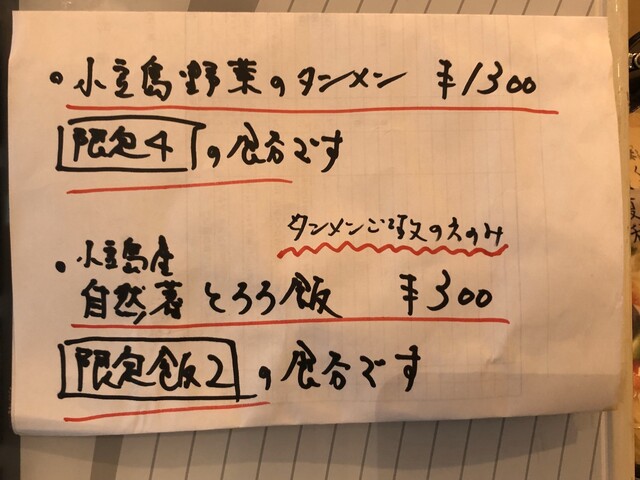 ・小豆島野菜のタンメン ¥1300
限定4の食台です
タンメンご注文の方のみ
・小豆島産
自然薯とろろ飯 ¥300
限定飯2の食台です